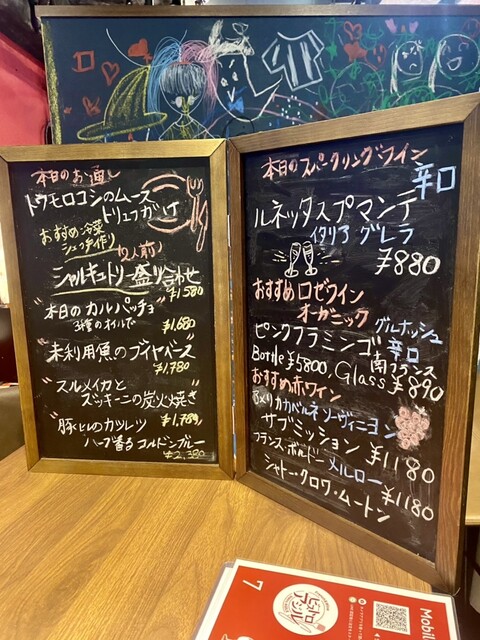 本日のお通し
トウモロコシのムース
トリュフがけ
おすすめ冷菜
シェフ手作り
(2人前)
シャルキュトリー盛り合わせ
¥1,580
"本日のカルパッチョ
3種のオイルで
¥1,680
"未利用魚のブイヤベース"
¥1,780
"スルメイカと
ズッキーニの炭火焼き"
¥1,789
"豚ヒレのカツレツ
ハーブ香るコルドンブルー
¥2,380
本日のスパークリングワイン
辛口
ルネッタスプマンテ
イタリア グレラ
¥880
おすすめロゼワイン
オーガニック
グルナッシュ
ピンクフラミンゴ 辛口
南フランス
Bottle ¥5800, Glass ¥890
おすすめ赤ワイン
アメリカカベルネソーヴィニヨン
サブミッション ¥1180
フランス・ボルドー メルロー
¥1180
シャトー・クロワ・ムートン
7
ビストロ
Mobi